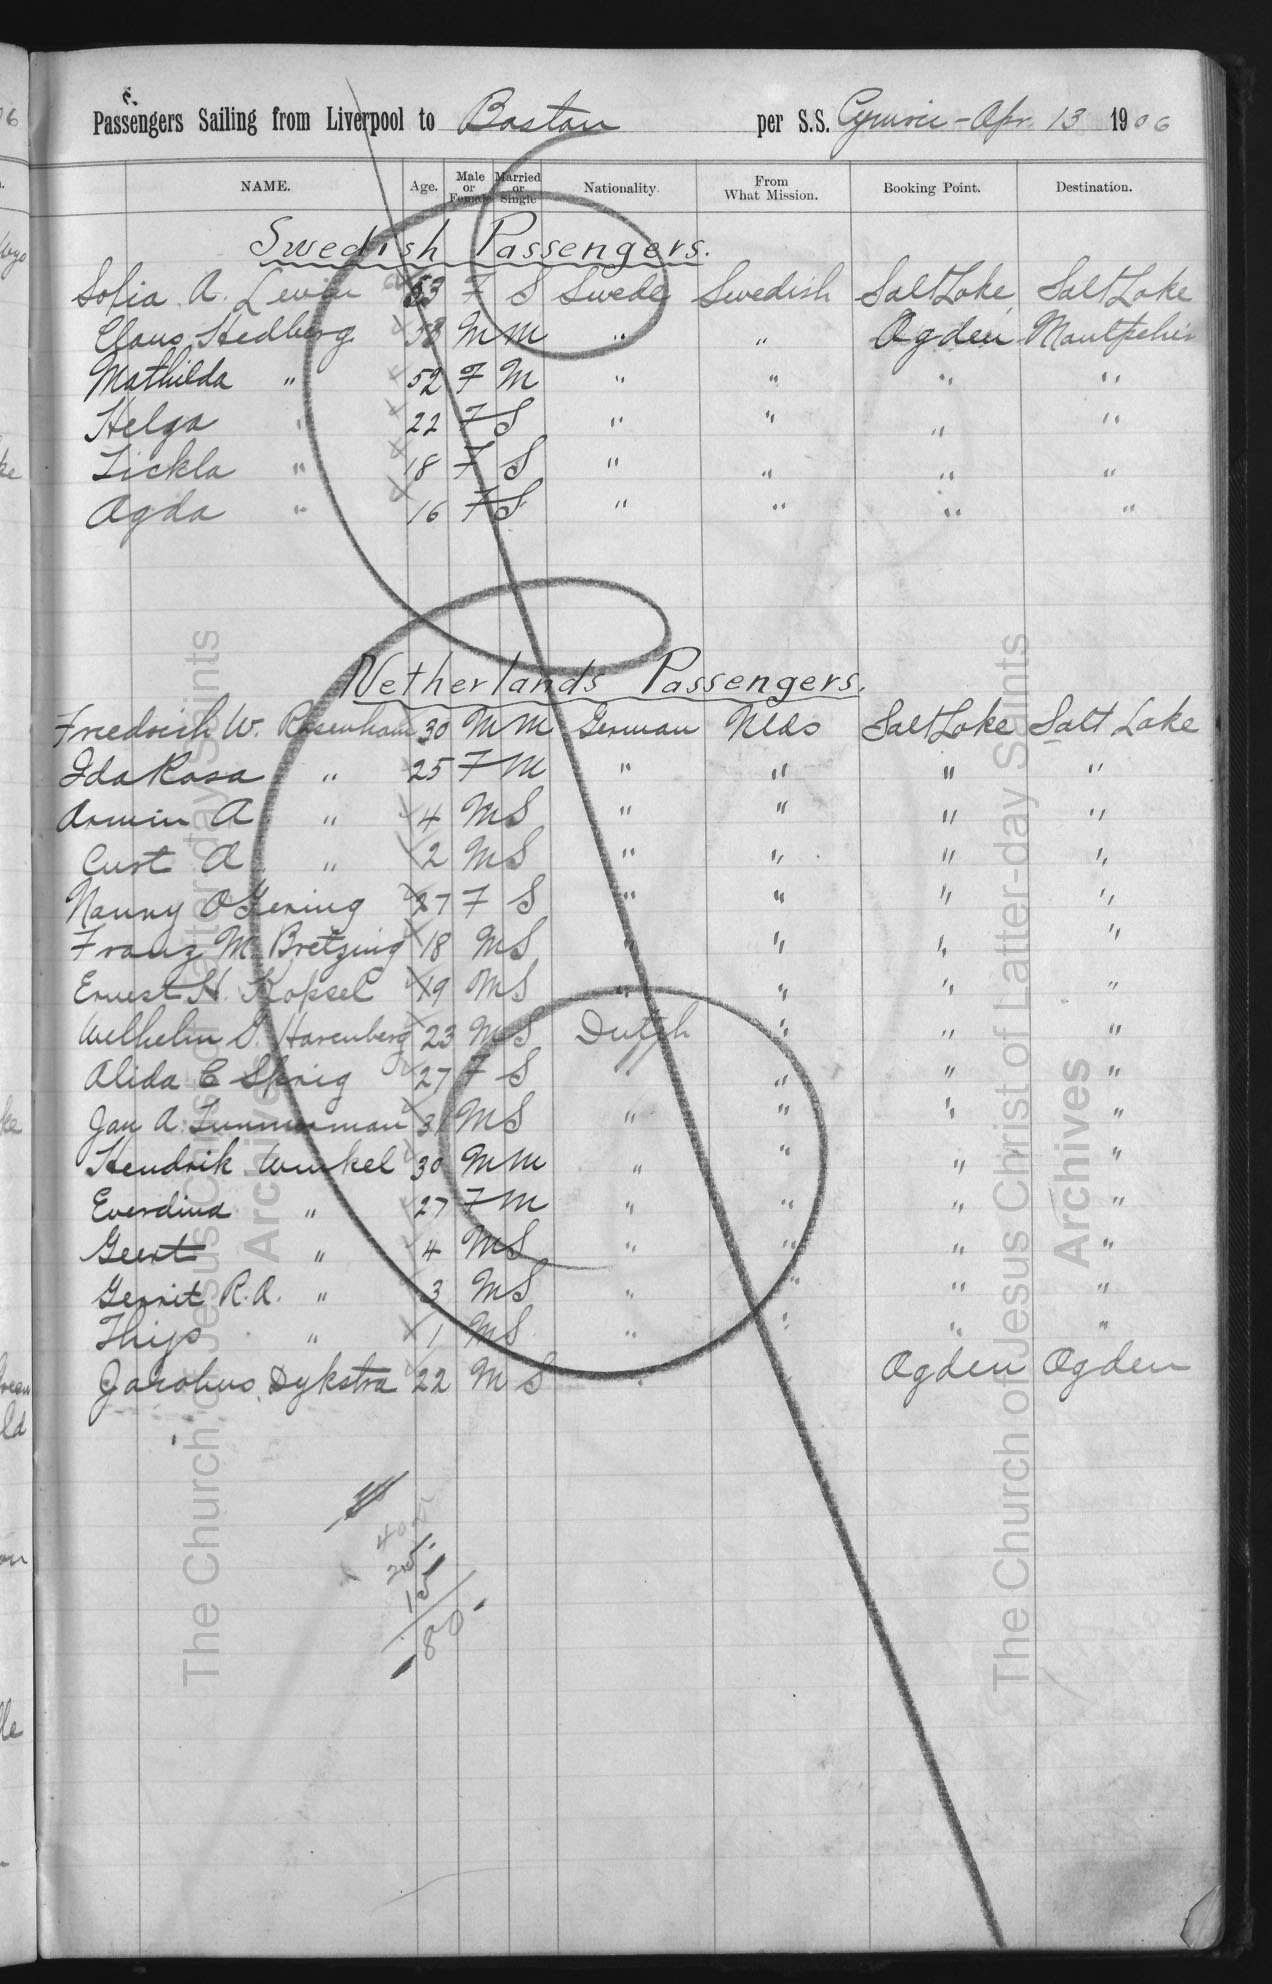 Passengers Sailing from Liverpool to Boston per S.S. Cymric - Apr. 13 1906
NAME. Age. Male or Female Married or Single Nationality. From What Mission. Booking Point. Destination.
Swedish Passengers.
Sofia A. 53 F S Swede Swedish Salt Lake Salt Lake
Claus Hedberg 58 M M " " Ogden Montpelier
Mathilda " 52 F M " " " "
Helga " 22 F S " " " "
Lickla " 18 F S " " " "
Agda " 16 F S " " " "
Netherlands Passengers.
Freedrich W. Rosenham 30 M M German Nlds Salt Lake Salt Lake
Ida Rosa " 25 F M " " " "
Armin A " 4 M S " " " "
Curt A " 2 M S " " " "
Nanny O Gering 27 F S " " " "
Franz M. Bretzing 18 M S " " " "
Ernest H. Kopsel 19 M S " " " "
Welhelm G. Harenberg 23 M S Dutch " " "
Alida C Sprig 27 F S " " " "
Jan A. 31 M S " " " "
Hendrik Winkel 30 M M " " " "
Everdina " 27 F M " " " "
Geert " 4 M S " " " "
Gerrit R.A. " 3 M S " " " "
Thijs " 1 M S " " " "
Jacobus Dykstra 22 M S " Ogden Ogden
15
80
The Church of Jesus Christ of Latter-day Saints
Archives
The Church of Jesus Christ of Latter-day Saints
Archives